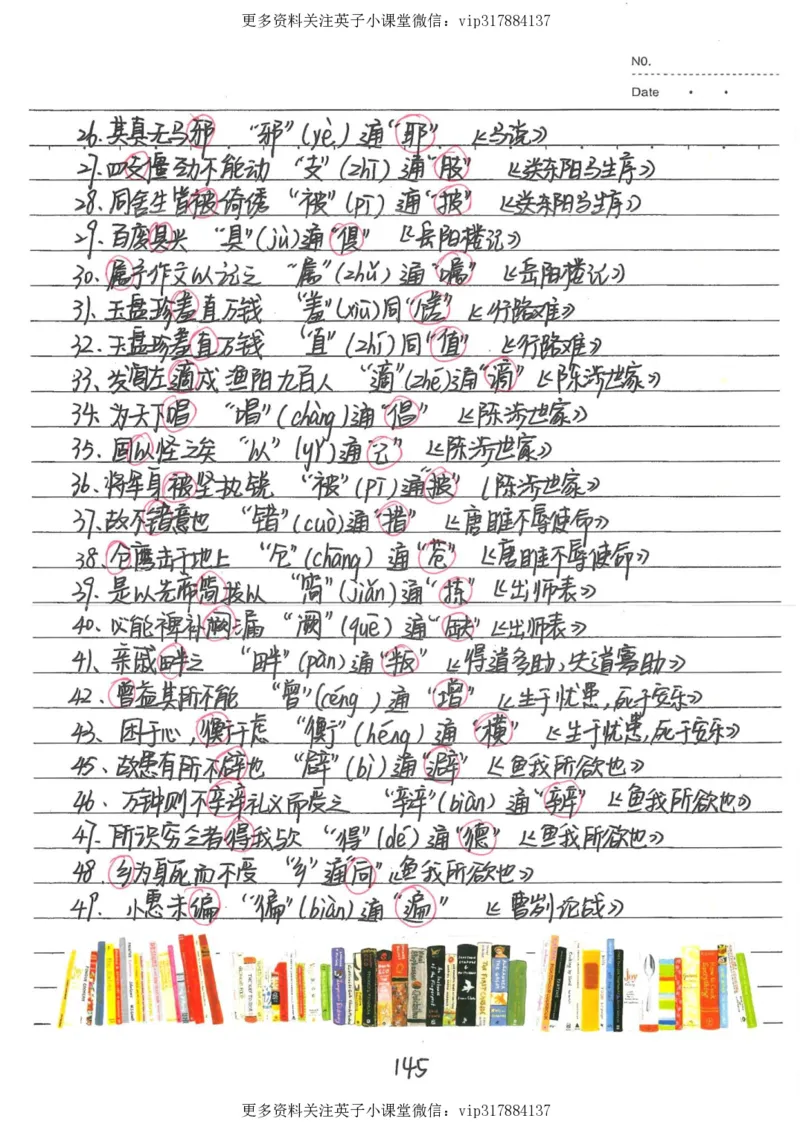 更多资料关注英子小课堂微信：vip317884137
NO.
Date
26、其真无马邪 “邪”(yè) 通“耶” 《马说》
27、四支僵劲不能动 “支”(zhī) 通“肢” 《送东阳马生序》
28、同舍生皆被绮绣 “被”(pī) 通“披” 《送东阳马生序》
29、百废具兴 “具”(jù)通“俱” 《岳阳楼记》
30、属予作文以记之 “属”(zhǔ) 通“嘱” 《岳阳楼记》
31、玉盘珍羞直万钱 “羞”(xiū)同“馐” 《行路难》
32、玉盘珍羞直万钱 “直”(zhí)同“值” 《行路难》
33、发闾左適戍渔阳九百人 “適”(zhé)通“谪” 《陈涉世家》
34、为天下唱 “唱”(chàng)通“倡” 《陈涉世家》
35、固以怪之矣 “以”(yǐ)通“已” 《陈涉世家》
36、将军身被坚执锐 “被”(pī)通“披” 《陈涉世家》
37、故不错意也 “错”(cuò)通“措” 《唐雎不辱使命》
38、仓鹰击于地上 “仓”(cāng) 通“苍” 《唐雎不辱使命》
39、是以先帝简拔以 “简”(jiǎn)通“拣” 《出师表》
40、必能裨补阙漏 “阙”(quē) 通“缺” 《出师表》
41、亲戚畔之 “畔”(pàn) 通“叛” 《得道多助，失道寡助》
42、曾益其所不能 “曾”(céng ) 通 “增” 《生于忧患，死于安乐》
43、困于心，衡于虑 “衡”(héng) 通“横” 《生于忧患，死于安乐》
45、故患有所不辟也 “辟”(bì)通“避” 《鱼我所欲也》
46、万钟则不辩礼义而受之 “辩”(biàn) 通“辨” 《鱼我所欲也》
47、所识穷乏者得我与欤 “得”(dé) 通“德” 《鱼我所欲也》
48、乡为身死而不受 “乡”通“向” 《鱼我所欲也》
49、小惠未徧 “徧”(biàn)通“遍” 《曹刿论战》
145
更多资料关注英子小课堂微信：vip317884137